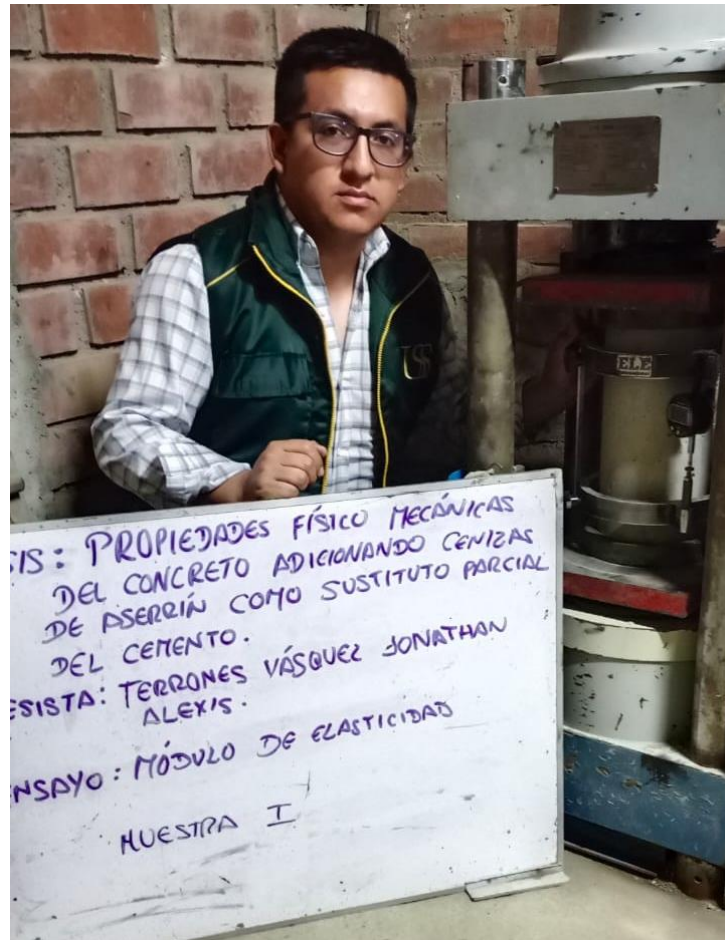 SIS: PROPIEDADES FÍSICO MECÁNICAS
DEL CONCRETO ADICIONANDO CENIZAS
DE ASERRÍN COMO SUSTITUTO PARCIAL
DEL CEMENTO.
ESISTA: TERRONES VÁSQUEZ JONATHAN
ALEXIS.
ENSAYO: MÓDULO DE ELASTICIDAD
MUESTRA I
USS